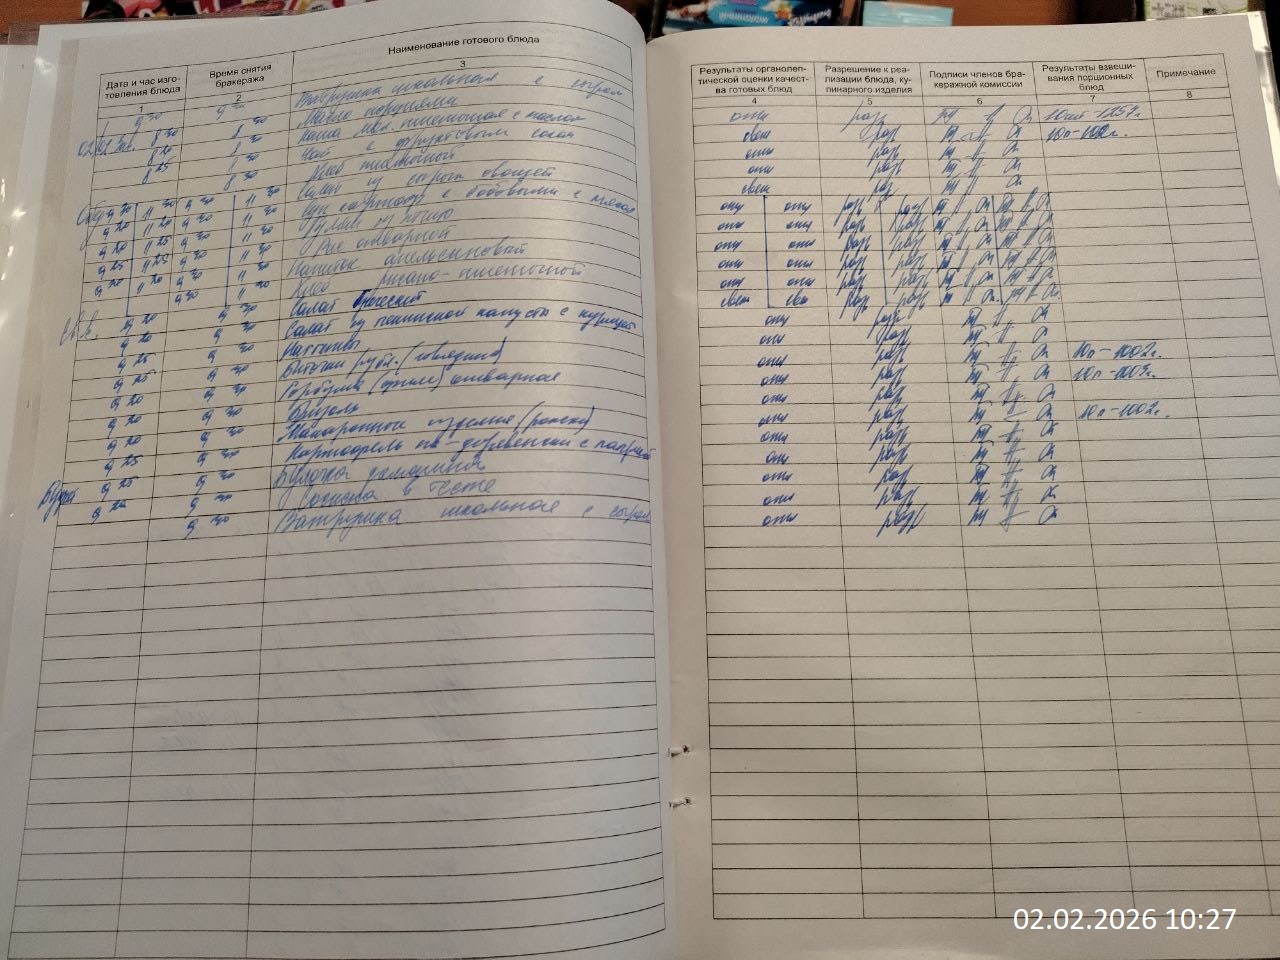 Наименование готового блюда
Дата и час изго-
товления блюда
Время снятия
бракеража
1
2
3
9 30 9 Ватрушка школьная с сыром
02.02 8 20 8 30 Масло порциями
8 20 8 30 Каша мол. пшенная с маслом
8 25 8 30 Чай с фруктовым соком
8 30 Хлеб пшеничный
9 20 11 20 9 30 11 30 Салат из сырых овощей
9 20 11 20 9 30 11 30 Суп картоф. с бобовыми с мясом
9 20 11 25 9 30 11 30 Гуляш из птицы
9 25 11 25 9 30 11 30 Рис отварной
9 20 11 20 9 30 11 30 Напиток апельсиновый
9 30 11 30 Хлеб ржано-пшеничный
9 20 9 30 Салат греческий
9 20 9 30 Салат из пекинской капусты с курицей
9 25 9 30 Наггетсы
9 25 9 30 Биточки рубл. (говядина)
9 20 9 30 Горбуша (филе) отварное
9 20 9 30
9 20 9 30 Макаронные изделия (рожки)
9 25 9 30 Картофель по-деревенски с паприкой
9 25 9 30 Булочка домашняя
9 20 9 30 Сосиска в тесте
9 30 Ватрушка школьная с сыром
Результаты органолеп-
тической оценки качест-
ва готовых блюд
Разрешение к реа-
лизации блюда, ку-
линарного изделия
Подписи членов бра-
керажной комиссии
Результаты взвеши-
вания порционных
блюд
Примечание
4
5
6
7
8
отл разр
свеж разр
отл разр
отл разр
свеж раз
отл отл разр разр
отл отл разр разр
отл отл разр разр
отл отл разр разр
отл отл разр разр
свеж свеж разр разр
отл разр
отл разр
отл разр 10п-1002г.
отл разр 10п-1003г.
отл разр
отл разр 10п-1002г.
отл разр
отл разр
отл разр
отл разр
отл разр
02.02.2026 10:27